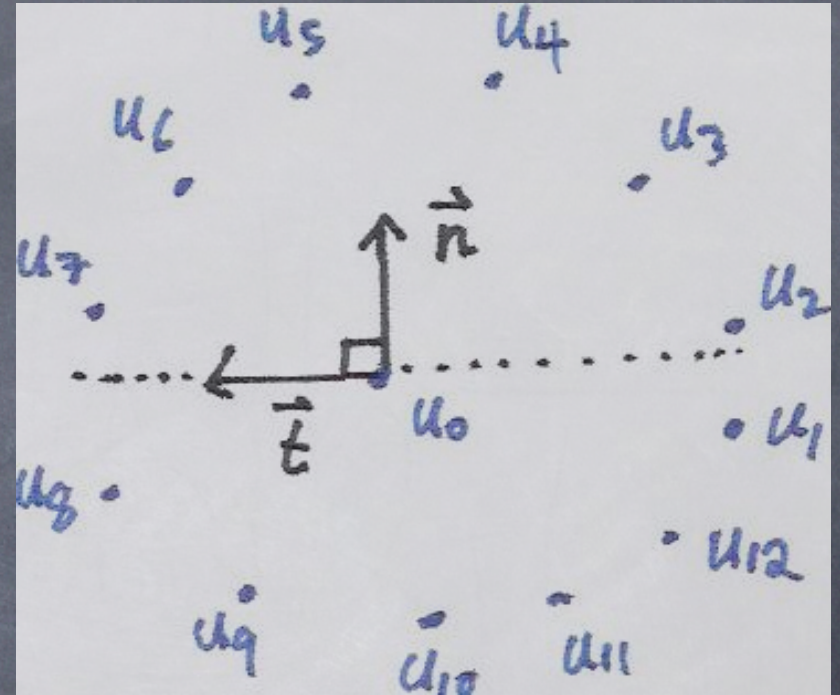 u₅ u₄
u₆ u₃
n⃗
u₇ u₂
t⃗ u₀ u₁
u₈ u₁₂
u₉ u₁₀ u₁₁